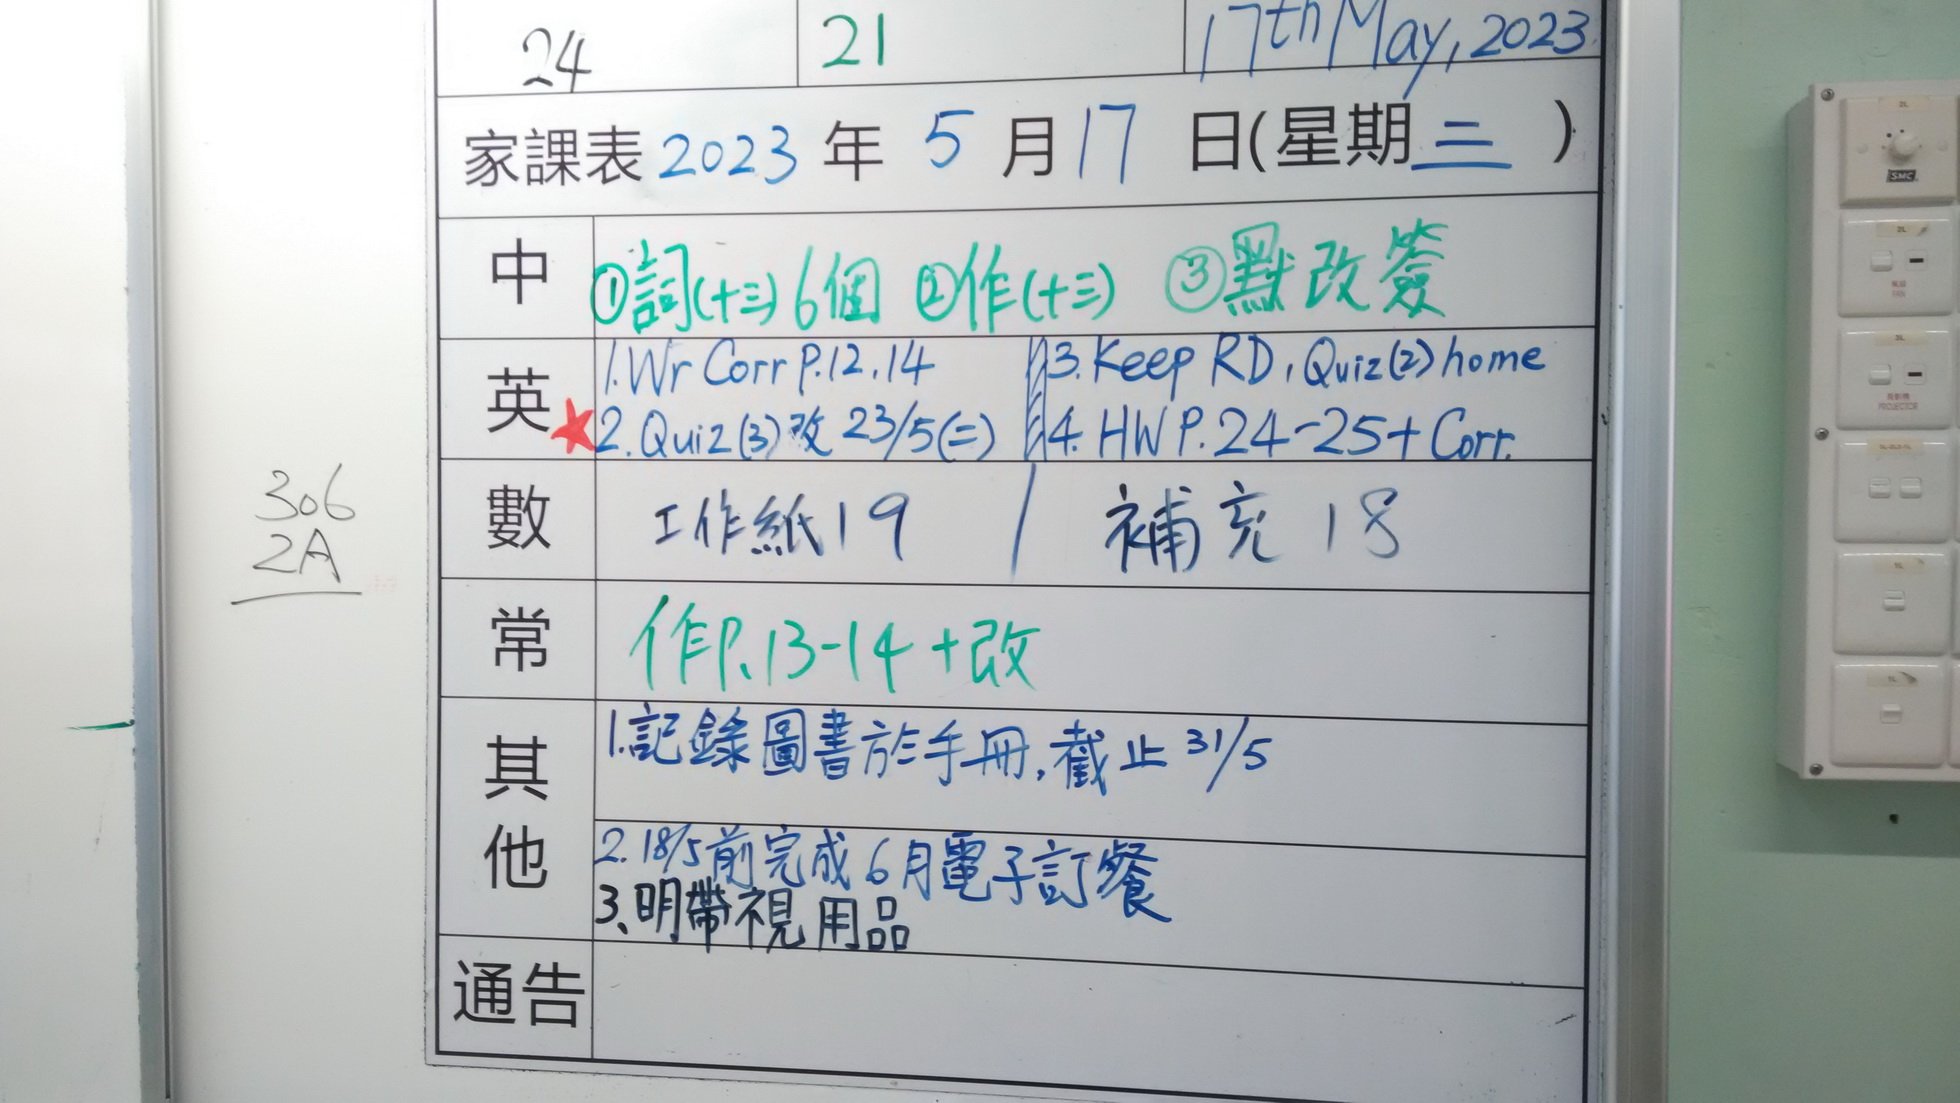 24 21 17th May, 2023
家課表 2023 年 5 月 17 日(星期三)
中 ①詞(十三)6個 ②作(十三) ③默改簽
英 1. Wr Corr P.12,14 3. Keep RD, Quiz(2) home
★2. Quiz(3)改 23/5(二) 4. HW P.24-25+Corr.
數 工作紙19 / 補充18
常 作P.13-14+改
其他 1.記錄圖書於手冊,截止31/5
2. 18/5前完成6月電子訂餐
3、明帶視用品
通告
306
2A
SMC
FAN
PROJECTOR